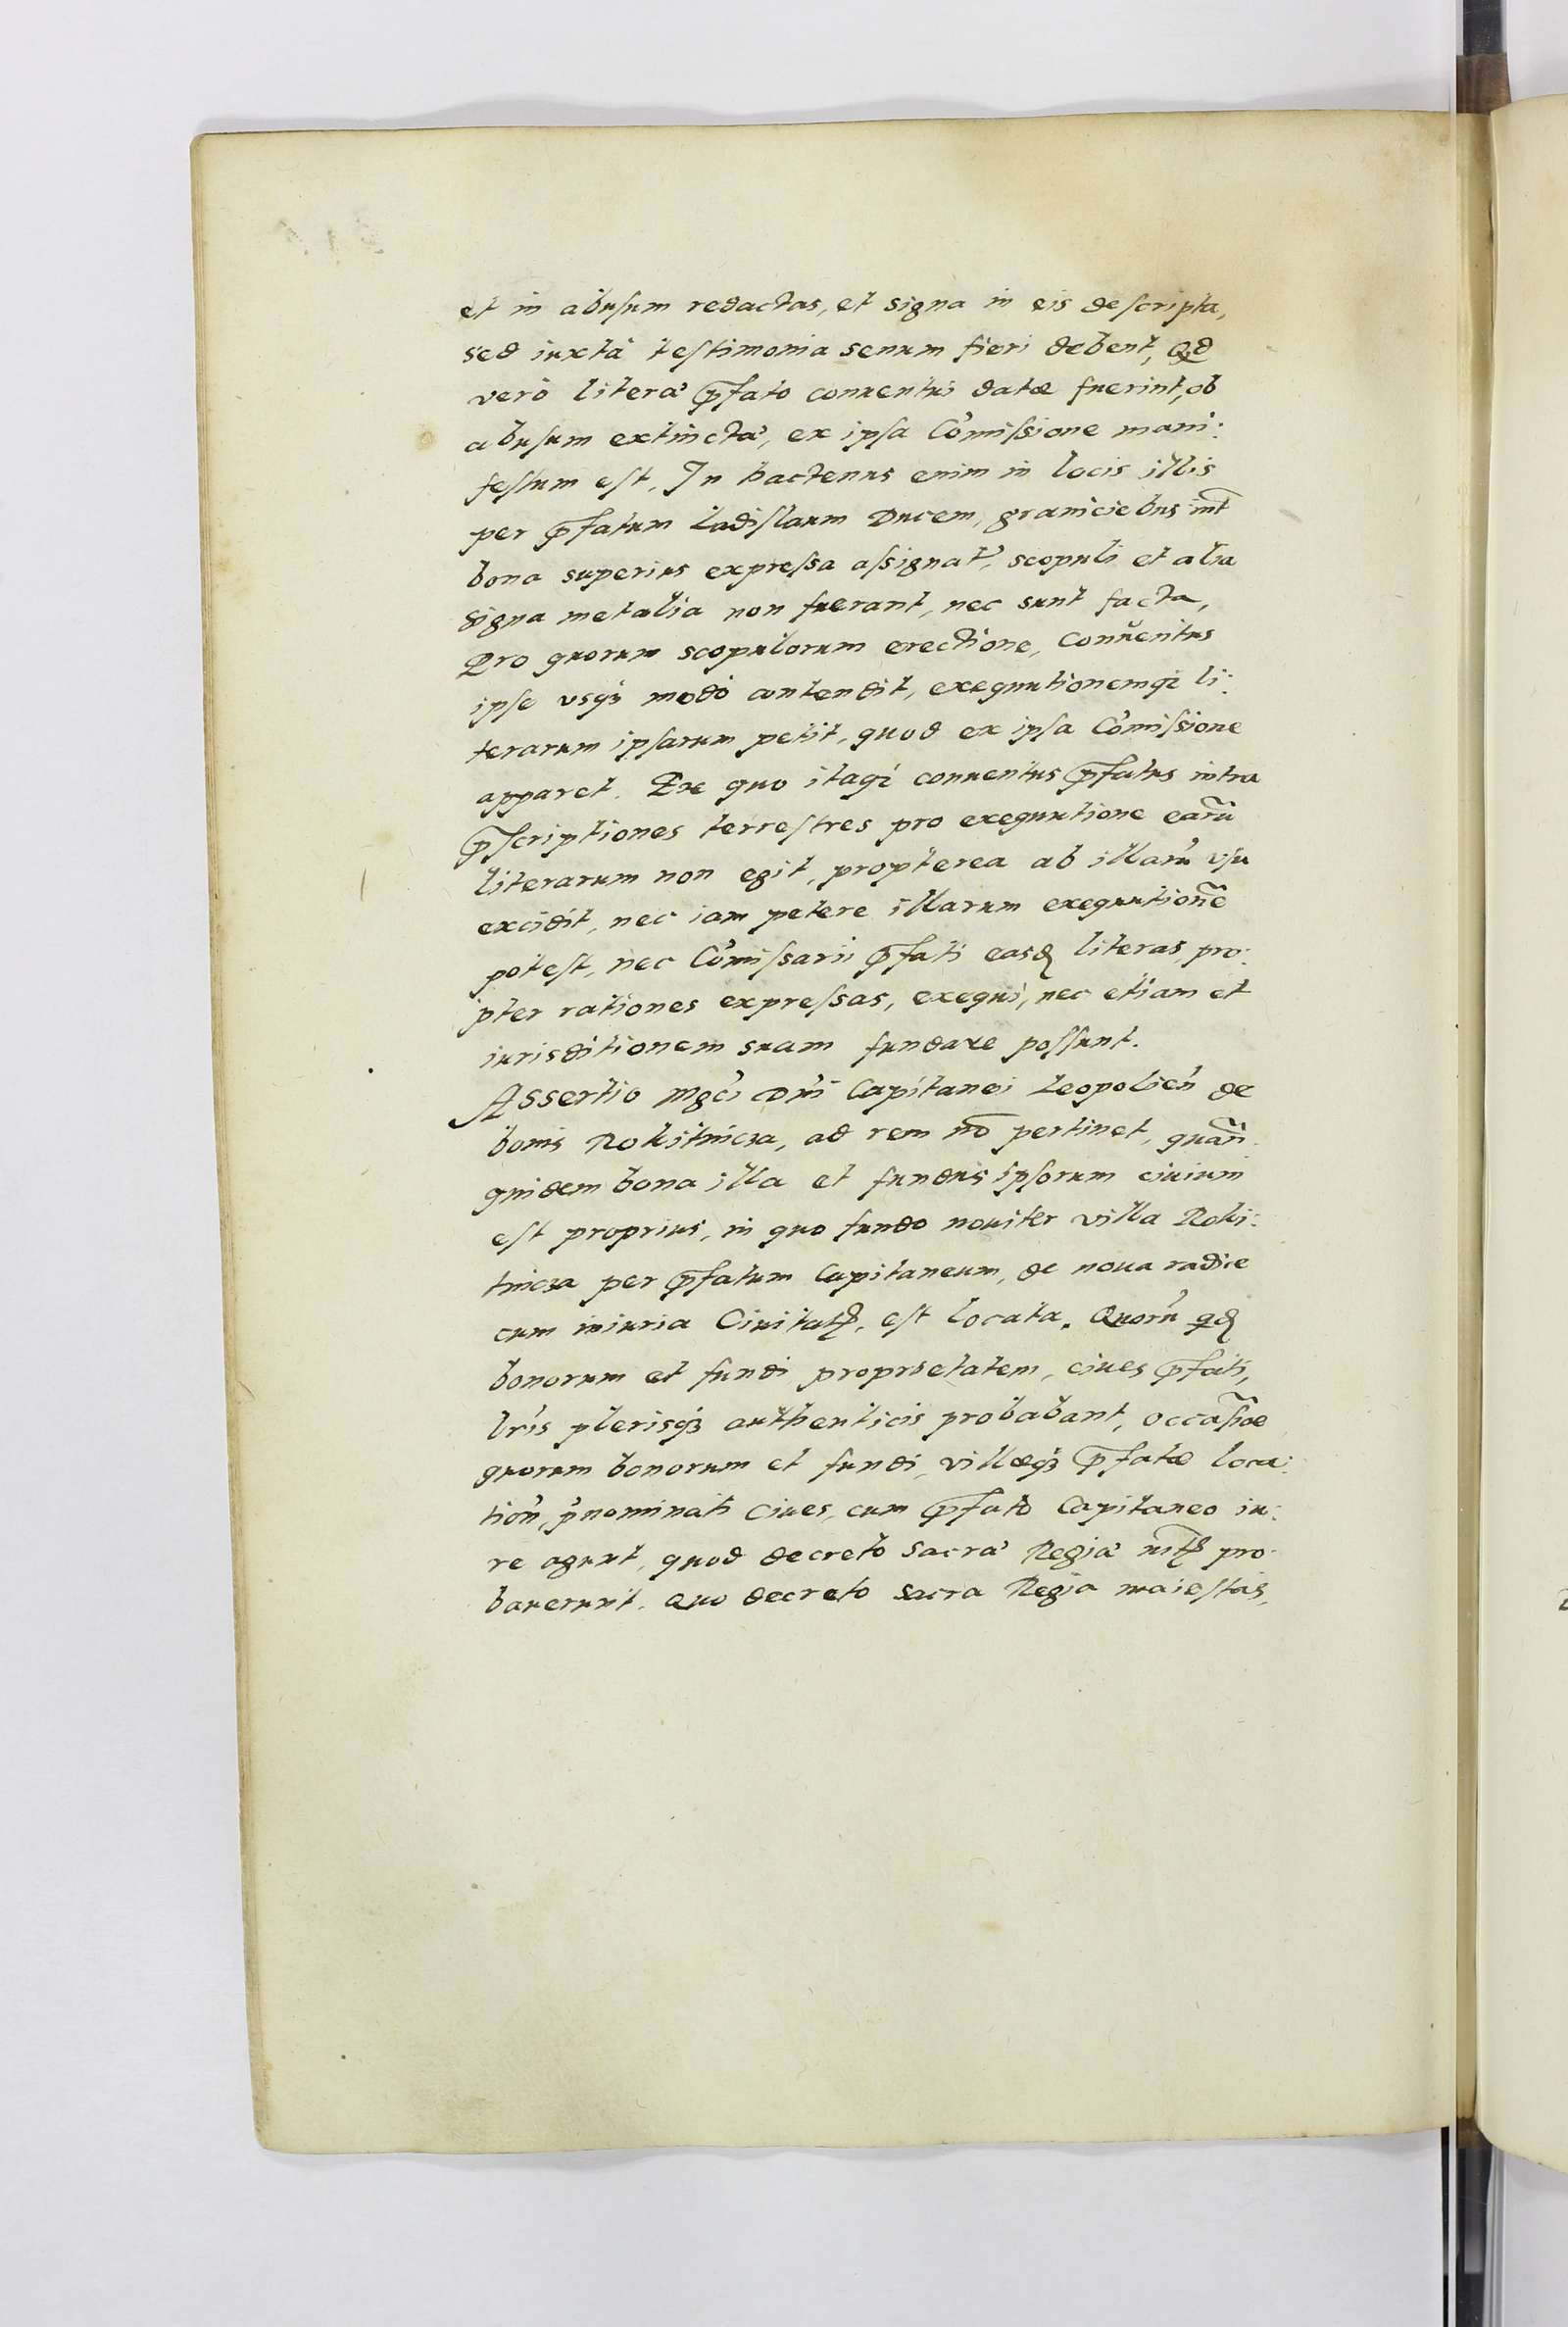 et in abusum redactas, et signa in eis descripta,
sed iuxtà testimonia senum fieri debent, Qd
verò literæ p̄fato conuentui datæ fuerint, ob
abusum extinctæ, ex ipsa Cōmissione mani:
festum est. In hactenus enim in locis illis
per p̄fatum Ladislaum Ducem, graniciebus int̄
bona superius expressa assignat', scopuli et alia
signa metalia non fuerant, nec sunt facta,
Pro quorum scopulorum erectione, Conuentus
ipse vsq3 modo contendit, exequutionemq3 li:
terarum ipsarum petit, quod ex ipsa Cōmissione
apparet. Ex quo itaq3 conuentus p̄fatus intra
p̄scriptiones terrestres pro exequutione earū
literarum non egit, propterea ab illarū vsu
excidit, nec iam petere illarum exequutionē
potest, nec Cōmissarii p̄fati easd literas, pro:
pter rationes expressas, exequi, nec etiam et
iurisditionem suam fundare possunt.
Assertio Mgci Dni Capitanei Leopolień de
bonis Rokitnicza, ad rem nō pertinet, quan
quidem bona illa et fundus ipsorum ciuium
est proprius, in quo fundo nouiter villa Roki:
tnicza per p̄fatum Capitaneum, de noua radice
cum iniuria Ciuitat̄, est locata. Quorū qd
bonorum et fundi proprietatem, ciues p̄fati,
lris plerisq3 authenticis probabant, occasiōe
quorum bonorum et fundi, villæq3 p̄fatæ loca:
tioń, p̄nominati Ciues, cum p̄fato Capitaneo iu:
re agunt, quod decreto Sacræ Regiæ mt̄ pro:
bauerunt. Quo decreto Sacra Regia maiestas,